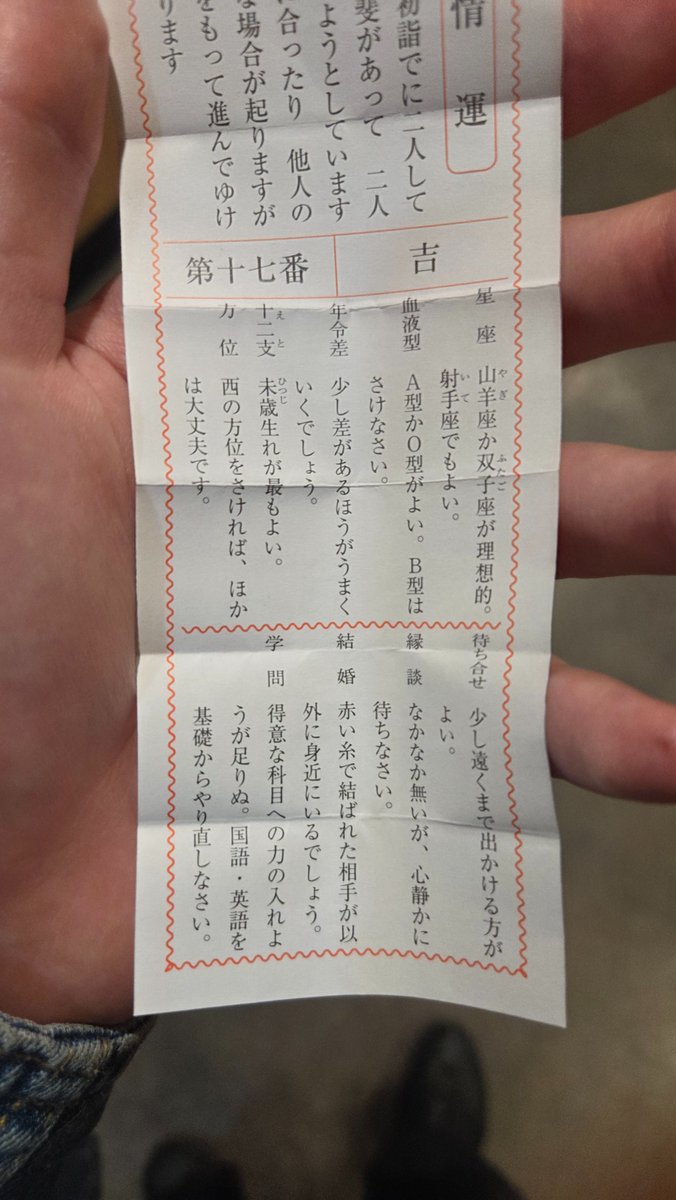 情運
初詣でに二人して
斐があって 二人
ようとしています
合ったり 他人の
な場合が起りますが
をもって進んでゆけ
ります
吉
第十七番
星座
山羊座か双子座が理想的。
射手座でもよい。
血液型
A型かO型がよい。B型は
さけなさい。
年令差
少し差があるほうがうまく
いくでしょう。
十二支
未歳生れが最もよい。
方位
西の方位をさければ、ほか
は大丈夫です。
待ち合せ
少し遠くまで出かける方が
よい。
縁談
なかなか無いが、心静かに
待ちなさい。
結婚
赤い糸で結ばれた相手が以
外に身近にいるでしょう。
学問
得意な科目への力の入れよ
うが足りぬ。国語・英語を
基礎からやり直しなさい。